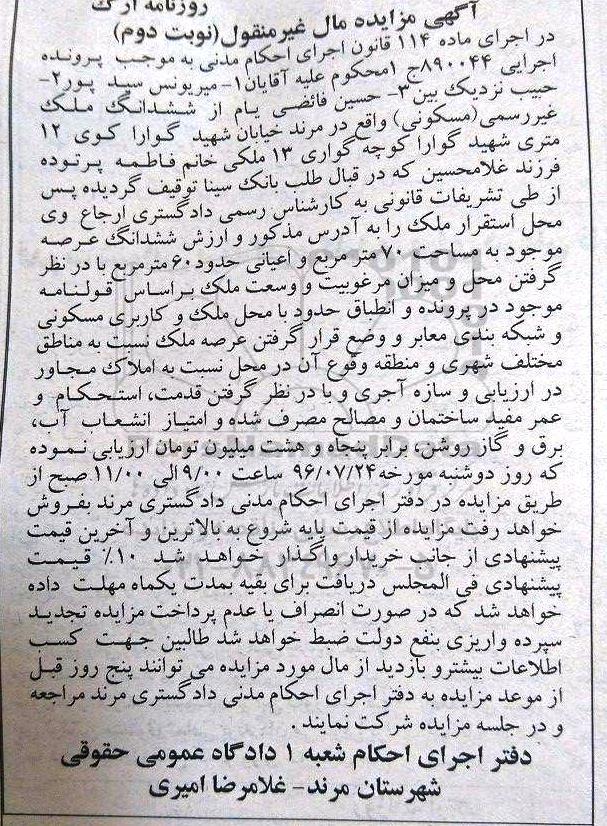 روزنامه ارک
آگهی مزایده مال غیرمنقول(نوبت دوم)
در اجرای ماده ۱۱۴ قانون اجرای احکام مدنی به موجب پرونده
اجرایی ۸۹۰۰۴۴ج ۱محکوم علیه آقایان۱- میریونس سید پور۲-
حبیب نزدیک بین ۳- حسین فائضی یام از ششدانگ ملک
غیررسمی(مسکونی) واقع در مرند خیابان شهید گوارا کوی ۱۲
متری شهید گوارا کوچه گواری ۱۳ ملکی خانم فاطمه پرتوده
فرزند غلامحسین که در قبال طلب بانک سینا توقیف گردیده پس
از طی تشریفات قانونی به کارشناس رسمی دادگستری ارجاع وی
محل استقرار ملک را به آدرس مذکور و ارزش ششدانگ عرصه
موجود به مساحت ۷۰ متر مربع و اعیانی حدود۶۰ مترمربع با در نظر
گرفتن محل و میزان مرغوبیت و وسعت ملک براساس قولنامه
موجود در پرونده و انطباق حدود با محل ملک و کاربری مسکونی
و شبکه بندی معابر و وضع قرار گرفتن عرصه ملک نسبت به مناطق
مختلف شهری و منطقه وقوع آن در محل نسبت به املاک مجاور
در ارزیابی و سازه آجری و با در نظر گرفتن قدمت، استحکام و
عمر مفید ساختمان و مصالح مصرف شده و امتیاز انشعاب آب،
برق و گاز روشن، برابر پنجاه و هشت میلیون تومان ارزیابی نموده
که روز دوشنبه مورخه۹۶/۰۷/۲۴ ساعت ۹/۰۰ الی ۱۱/۰۰ صبح از
طریق مزایده در دفتر اجرای احکام مدنی دادگستری مرند بفروش
خواهد رفت مزایده از قیمت پایه شروع به بالاترین و آخرین قیمت
پیشنهادی از جانب خریدار واگذار خواهد شد ۱۰٪ قیمت
پیشنهادی فی المجلس دریافت برای بقیه بمدت یکماه مهلت داده
خواهد شد که در صورت انصراف یا عدم پرداخت مزایده تجدید
سپرده واریزی بنفع دولت ضبط خواهد شد طالبین جهت کسب
اطلاعات بیشترو بازدید از مال مورد مزایده می توانند پنج روز قبل
از موعد مزایده به دفتر اجرای احکام مدنی دادگستری مرند مراجعه
و در جلسه مزایده شرکت نمایند .
دفتر اجرای احکام شعبه ۱ دادگاه عمومی حقوقی
شهرستان مرند- غلامرضا امیری